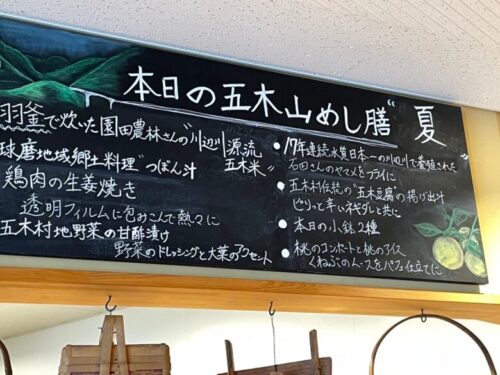 本日の五木山めし膳"夏"
羽釜で炊いた園田農林さんの"川辺川源流五木米"
球磨地域郷土料理"つぼん汁
鶏肉の生姜焼き
透明フィルムに包みこんで熱々に
五木村地野菜の甘酢漬け
野菜のドレッシングと大葉のアクセント
●17年連続水質日本一の川辺川で養殖された
石田さんのヤマメをフライに
●五木村伝統の"五木豆腐"の揚げ出汁
ピリッと辛いネギダレと共に
●本日の小鉢2種
●桃のコンポートと桃のアイス
くねぶのん・スをパフェ仕立てに